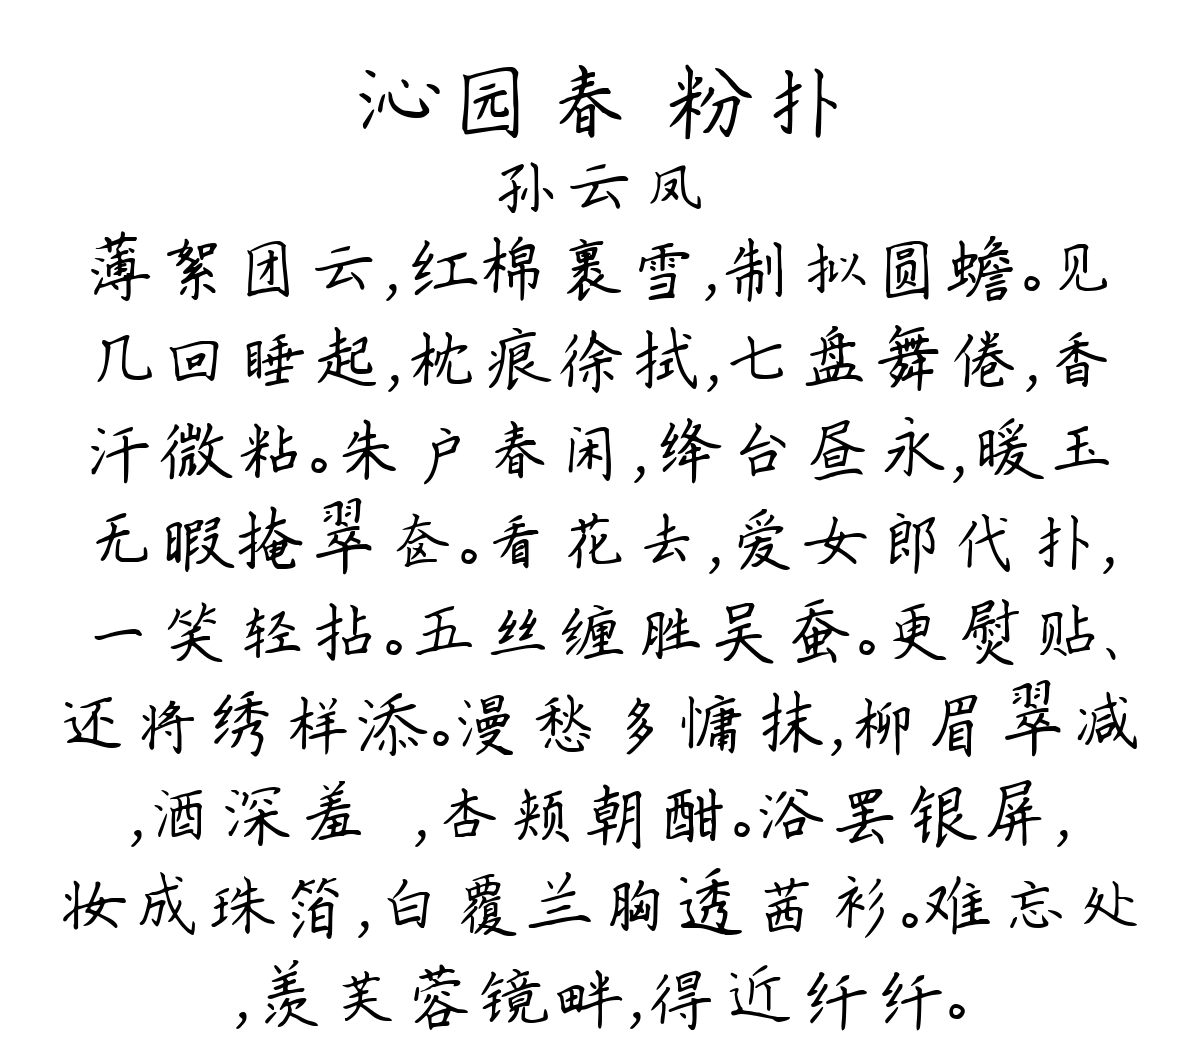 沁园春 粉扑
孙云凤
薄絮团云,红棉裹雪,制拟圆蟾。见
几回睡起,枕痕徐拭,七盘舞倦,香
汗微粘。朱户春闲,绛台昼永,暖玉
无暇掩翠奁。看花去,爱女郎代扑,
一笑轻拈。五丝缠胜吴蚕。更熨贴、
还将绣样添。漫愁多慵抹,柳眉翠减
,酒深羞 ,杏颊朝酣。浴罢银屏,
妆成珠箔,白覆兰胸透茜衫。难忘处
,羡芙蓉镜畔,得近纤纤。